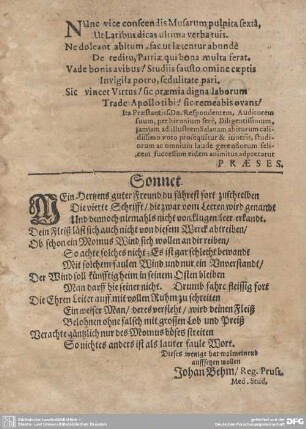 Nunc vice conscendis Musarum pulpita sextâ,
Ut Latibus dicas ultima verba tuis.
Ne doleant abitum, fac ut lætentur abundè
De reditu, Patriæ qui bona multa ferat.
Vade bonis avibus/ Studiis fausto omine cœptis
Invigila porrò, sedulitate pari.
Sic vincet Virtus/ sic præmia digna laborum
Trade Apollo tibi/ sic remeabis ovans/
Ita Præstantiss. Dn. Respondentem, Auditorem
suum, per biennium ferè, Diligentissimum,
jamjam ad illustrem Salanam abiturum calidissimo
voto prosequitur & intentis, studiorum
ac omnium laudè gerendorum felicem
successum eidem animitus adprecatur
PRÆSES.
Sonnet.
Mein Hertzens guter Freund du fährest fort zuschreiben
Die vierte Schrifft/ die zwar vom Leeren wird genandt
Und dennoch niemahls nicht von klugen leer erkandt.
Dein Fleiß läst sich auch nicht von diesem Werck abtreiben/
Ob schon ein Momus Wind sich wollen an dir reiben/
So achte solches nicht; Es ist gar schlecht bewandt
Mit solchem faulen Wind und nur ein Unverstandt/
Der Wind soll künfftig heim in seinem Osten bleiben
Man darff hie seiner nicht. Drumb fahre fleissig fort
Die Ehren Leiter auff mit vollen Ruhm zu schreiten
Ein weiser Man/ der es versteht/ wird deinen Fleiß
Belohnen ohne falsch mit grossem Lob und Preiß
Verachte gäntzlich nur des Momus böses streiten
So nichtes anders ist als lauter faule Wort.
Dieses wenige hat wolmeinend
auffsetzen wollen
Johan Behm/ Reg. Pruss.
Med. Stud.